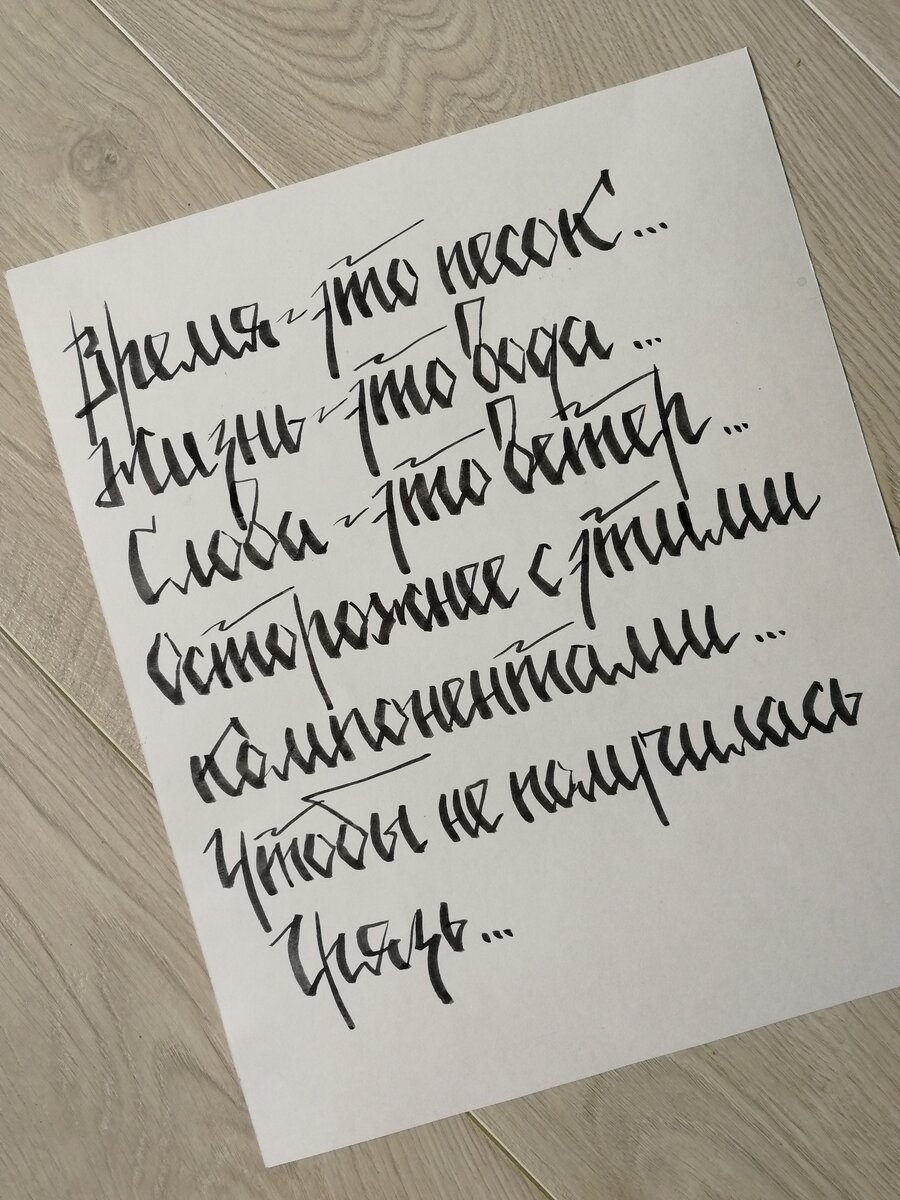 Время - это песок...
Жизнь - это вода...
Слова - это ветер...
Осторожнее с этими
компонентами...
Чтобы не получилась
Грязь...